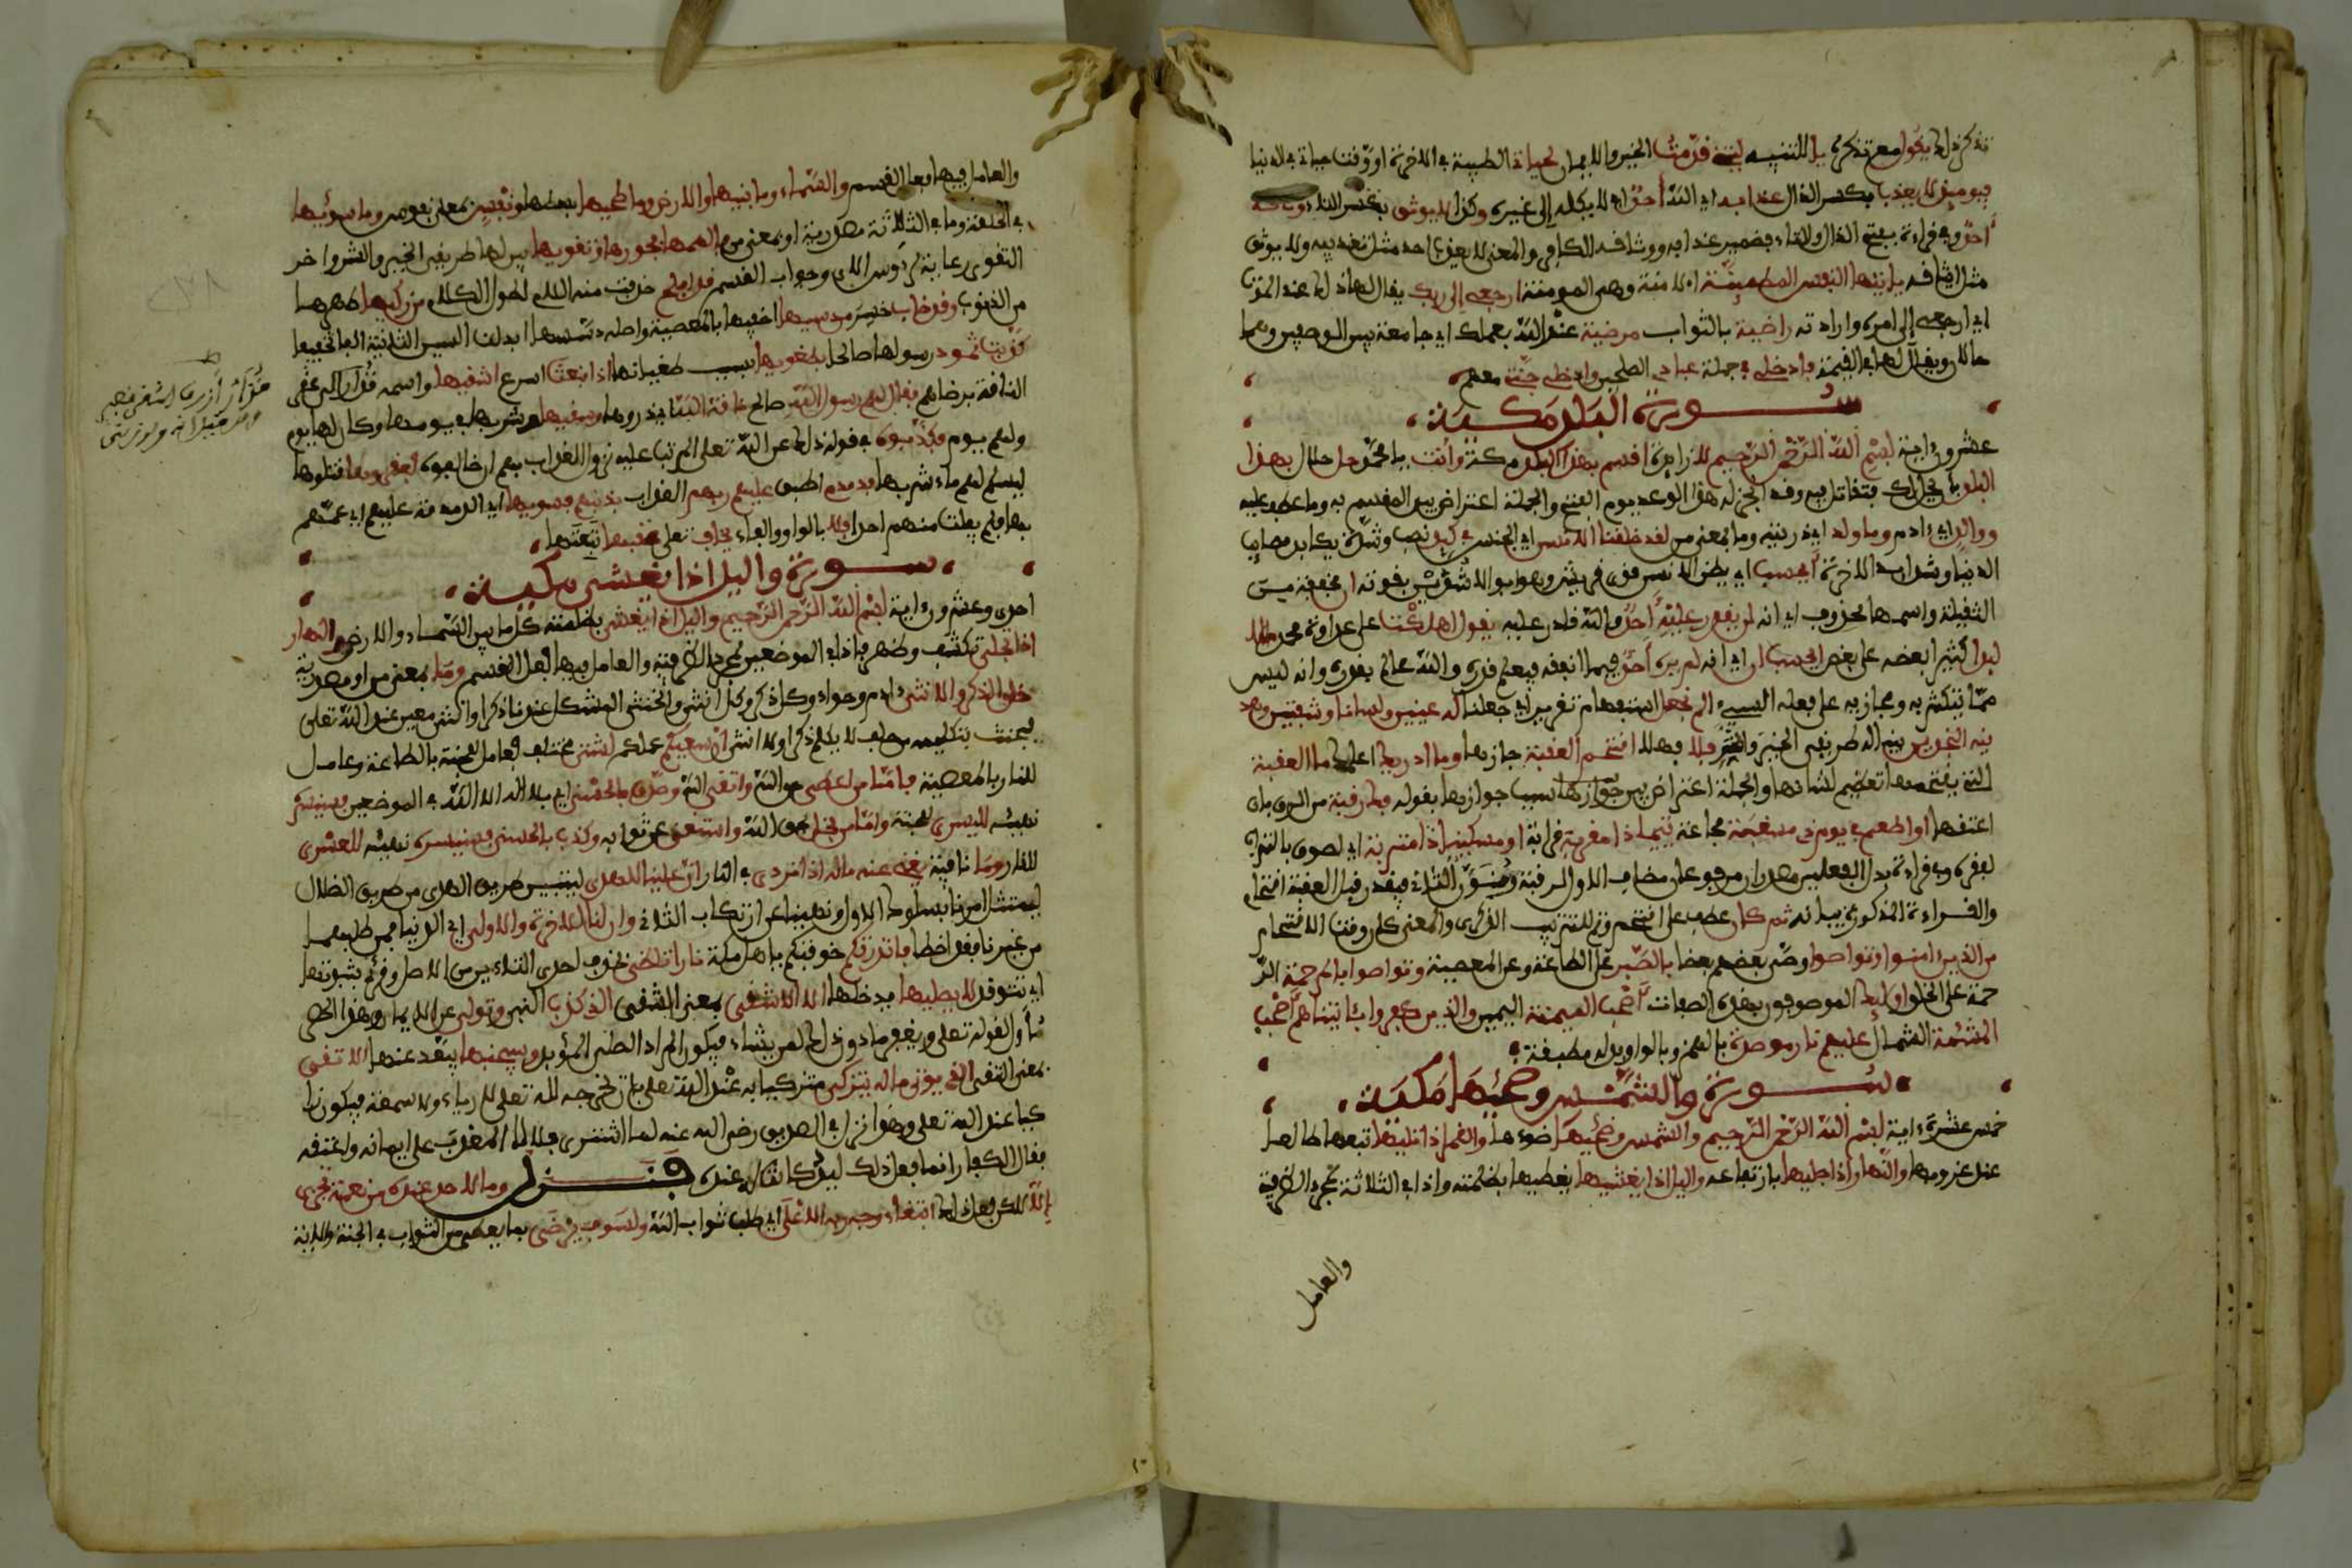 تذكره ذلك يقول مع تذكره يا للتنبيه ليتني قدمت الخير والايمان لحياتي الطيبة في الاخرة او وقت حياتي في الدنيا
فيومئذ لا يعذب بكسر الذال عذابه اي الله احد اي لا يكله الى غيره وكذا لا يوثق بكسر الثاء وثاقه
احد وفي قراءة بفتح الذال والثاء فضمير عذابه ووثاقه للكافر والمعنى لا يعذب احد مثل تعذيبه ولا يوثق
مثل ايثاقه يايتها النفس المطمئنة الامنة وهي المومنة ارجعي الى ربك يقال لها ذلك عند الموت
اي ارجعي الى امره وارادته راضية بالثواب مرضية عند الله بعملك اي جامعة بين الوصفين وهما
حالان ويقال لها في القيمة فادخلي في جملة عبادي الصلحين وادخلي جنتي معهم
سورة البلد مكية
عشرون ءاية بسم الله الرحمن الرحيم لا زايدة اقسم بهذا البلد مكة وانت يا محمد حل حلال بهذا
البلد بان يحل لك فتقاتل فيه وقد انجز له هذا الوعد يوم الفتح والجملة اعتراض بين المقسم به وما عطف عليه
ووالد اي ءادم وما ولد اي ذريته وما بمعنى من لقد خلقنا الانسن اي الجنس في كبد نصب وشدة يكابد مصايب
الدنيا وشدايد الاخرة ايحسب اي يظن الانسن قوي قريش وهو ابو الاشد بقوته ان مخففة من
الثقيلة واسمها محذوف اي انه لن يقدر عليه احد والله قادر عليه يقول اهلكت على عداوة محمد مالا
لبدا كثيرا بعضه على بعض ايحسب ان اي انه لم يره احد فيما انفقه فيعلم قدره والله عالم بقدره وانه ليس
مما يتكثر به ومجازيه على فعله السيء الم نجعل استفهام تقرير اي جعلنا له عينين ولسانا وشفتين وهد
ينه النجدين بينا له طريقي الخير والشر فلا فهلا اقتحم العقبة جازها وما ادريك اعلمك ما العقبة
التي يقتحمها تعظيم لشانها والجملة اعتراض بين جوازها سبب جوازها بقوله فك رقبة من الرق بان
اعتقها او اطعم في يوم ذي مسغبة مجاعة يتيما ذا مقربة قرابة او مسكينا ذا متربة اي لصوق بالتراب
لفقره وفي قراءة بدل الفعلين مصدران مرفوعان مضاف الاول لرقبة ومنون الثاني فيقدر قبل العقبة اقتحام
والقراءة المذكورة بيانه ثم كان عطف على اقتحم وثم للترتيب الذكري والمعنى كان وقت الاقتحام
من الذين امنوا وتواصوا اوصى بعضهم بعضا بالصبر على الطاعة وعن المعصية وتواصوا بالمرحمة الر
حمة على الخلق اوليك الموصوفون بهذه الصفات اصحب الميمنة اليمين والذين كفروا بئايتنا هم اصحب
المشئمة الشمال عليهم نار موصدة بالهمز وبالواو بدله مطبقة
سورة والشمس وضحيها مكية
خمس عشرة ءاية بسم الله الرحمن الرحيم والشمس وضحيها ضوءها والقمر اذا تليها تبعها طالعا
عند غروبها والنهار اذا جليها بارتفاعه واليل اذا يغشيها يغطيها بظلمته واذا في الثلاثة لمجرد الظرفية
والعامل
والعامل فيها فعل القسم والسماء وما بنيها والارض وما طحيها بسطها ونفس بمعنى نفوس وما سويها
في الخلقة وما في الثلاثة مصدرية او بمعنى من فالهمها فجورها وتقويها بين لها طريقي الخير والشر واخر
التقوى رعاية لرءوس الاي وجواب القسم قد افلح حذفت منه اللام لطول الكلام من زكيها طهرها
من الذنوب وقد خاب خسر من دسيها اخفيها بالمعصية واصله دسسها ابدلت السين الثانية الفا تخفيفا
كذبت ثمود رسولها صالحا بطغويها بسبب طغيانها اذ انبعث اسرع اشقيها واسمه قدار الى عقر
الناقة برضاهم فقال لهم رسول الله صالح ناقة الله ذروها وسقيها وشربها في يومها وكان لها يوم
ولهم يوم فكذبوه في قوله ذلك عن الله تعلى المرتب عليه نزول العذاب بهم ان خالفوه فعقروها قتلوها
ليسلم لهم ماء شربها فدمدم اطبق عليهم ربهم العذاب بذنبهم فسويها اي الدمدمة عليهم اي عمهم
بها فلم يفلت منهم احد ولا بالواو والفاء يخاف تعلى عقبيها تبعتها
سورة واليل اذا يغشى مكية
احدى وعشرون ءاية بسم الله الرحمن الرحيم واليل اذا يغشى بظلمته كل ما بين السماء والارض والنهار
اذا تجلى تكشف وظهر واذا في الموضعين لمجرد الظرفية والعامل فيها فعل القسم وما بمعنى من او مصدرية
خلق الذكر والانثى ءادم وحواء وكل ذكر وكل انثى والخنثى المشكل عندنا ذكر او انثى معين عند الله تعلى
فيحنث بتكليمه من حلف لا يكلم ذكرا ولا انثى ان سعيكم عملكم لشتى مختلف فعامل للجنة بالطاعة وعامل
للنار بالمعصية فاما من اعطى حق الله واتقى الله وصدق بالحسنى اي بلا اله الا الله في الموضعين فسنيسره
نهيئه لليسرى للجنة واما من بخل بحق الله واستغنى عن ثوابه وكذب بالحسنى فسنيسره نهيئه للعسرى
للنار وما نافية يغني عنه ماله اذا تردى في النار ان علينا للهدى لتبيين طريق الهدى من طريق الضلال
ليمتثل امرنا بسلوك الاول ونهينا عن ارتكاب الثاني وان لنا للاخرة والاولى اي الدنيا فمن طلبهما
من غيرنا فقد اخطا فانذرتكم خوفتكم يا اهل مكة نارا تلظى بحذف احدى التاءين من الاصل وقرئ بثبوتها
اي تتوقد لا يصليها يدخلها الا الاشقى بمعنى الشقي الذي كذب النبي وتولى عن الايمان وهذا الحصر
مأول لقوله تعلى ويغفر ما دون ذلك لمن يشاء فيكون المراد الصلي المؤبد وسيجنبها يبعد عنها الاتقى
بمعنى التقي الذي يؤتي ماله يتزكى متزكيا به عند الله تعلى بان يخرجه لله تعلى لا رياء ولا سمعة فيكون زا
كيا عند الله تعلى وهذا نزل في الصديق رضي الله عنه لما اشترى بلالا المعذب على ايمانه واعتقه
فقال الكفار انما فعل ذلك ليد كانت له عنده فنزل وما لاحد عنده من نعمة تجزى
الا لكن فعل ذلك ابتغاء وجه ربه الاعلى اي طلب ثواب الله ولسوف يرضى بما يعطى من الثواب في الجنة والاية